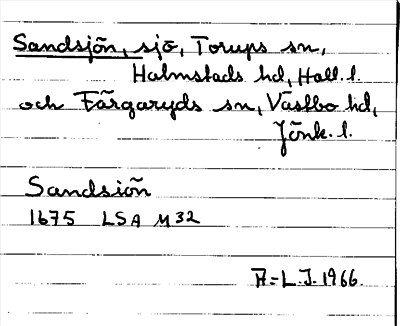 Sandsjön, sjö, Torups sn,
Halmstads hd, Hall. l.
och Färgaryds sn, Västbo hd,
Jönk. l.
Sandsiön
1675 LSA M32
A-L.J. 1966